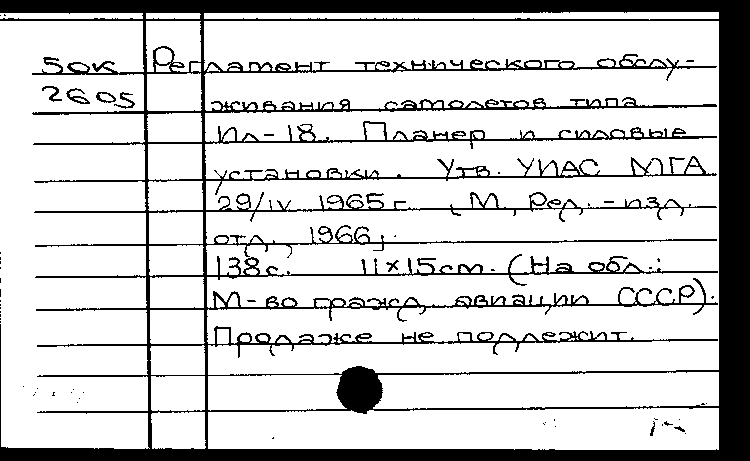 50К Регламент технического обслу-
2605 живания самолетов типа
Ил-18. Планер и силовые
установки. Утв. УИАС МГА
29/IV 1965г. [М., Ред.-изд.
отд., 1966].
138с. 11×15см. (На обл.:
М-во гражд. авиации СССР).
Продаже не подлежит.